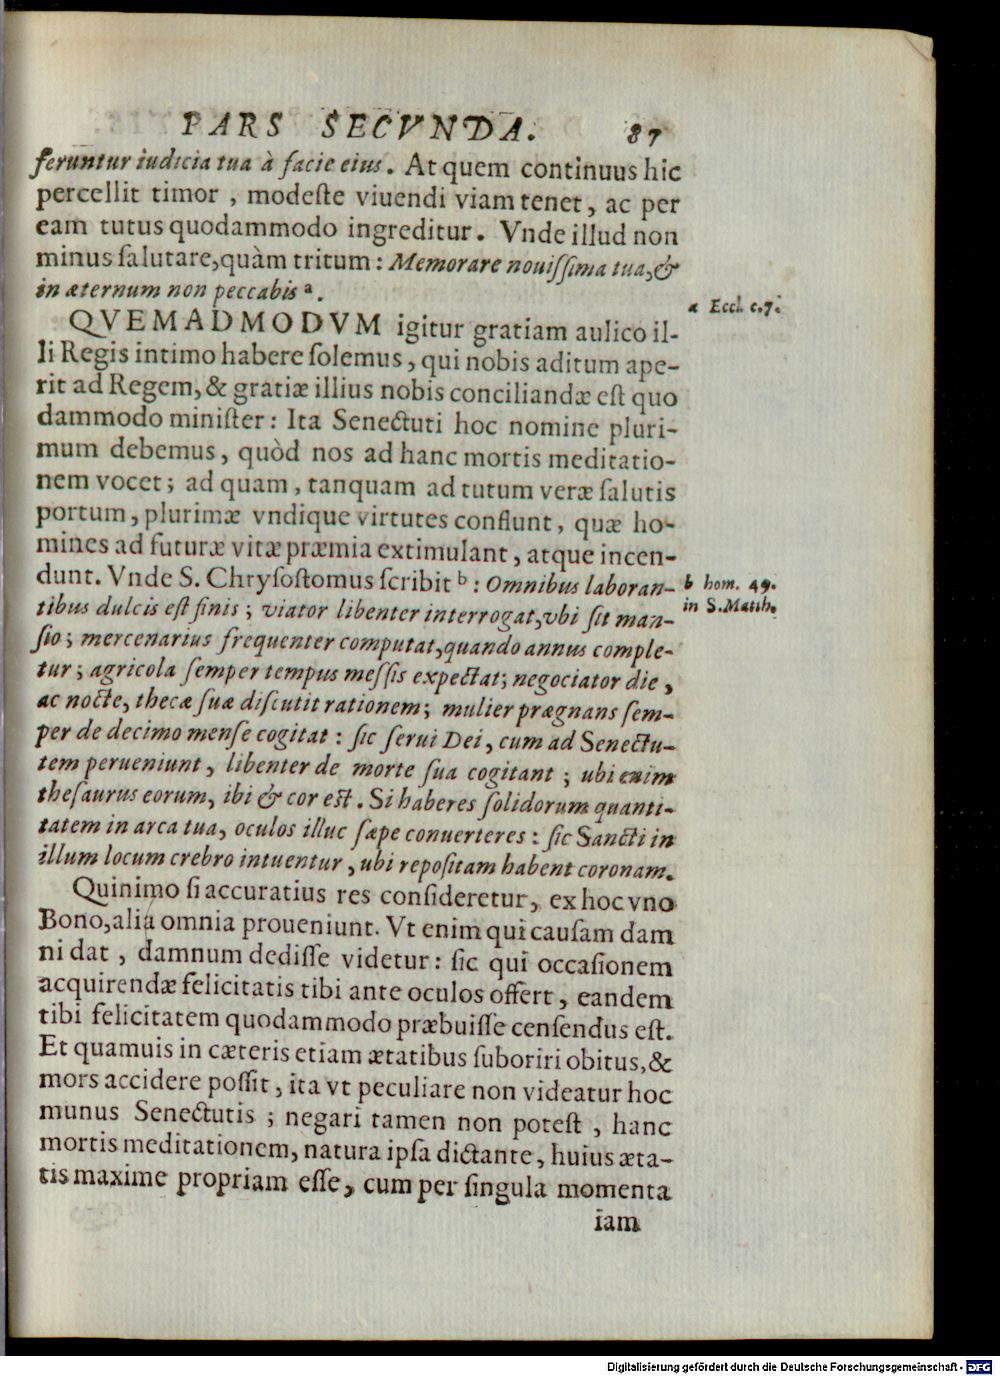 PARS SECVNDA. 87
feruntur iudicia tua à facie eius. At quem continuus hic
percellit timor , modeſte viuendi viam tenet, ac per
eam tutus quodammodo ingreditur. Vnde illud non
minus ſalutare,quàm tritum : Memorare nouiſſima tua,&
in æternum non peccabis ª.
a Eccl. c.7.
QVEMADMODVM igitur gratiam aulico il-
li Regis intimo habere ſolemus, qui nobis aditum ape-
rit ad Regem, & gratiæ illius nobis conciliandæ eſt quo
dammodo miniſter: Ita Senectuti hoc nomine pluri-
mum debemus, quòd nos ad hanc mortis meditatio-
nem vocet; ad quam, tanquam ad tutum veræ ſalutis
portum, plurimæ vndique virtutes confluunt, quæ ho-
mines ad futuræ vitæ præmia extimulant, atque incen-
dunt. Vnde S. Chryſoſtomus ſcribit ᵇ : Omnibus laboran-
b hom. 49.
tibus dulcis eſt finis ; viator libenter interrogat,vbi ſit man-
in S.Matth.
ſio ; mercenarius frequenter computat,quando annus comple-
tur ; agricola ſemper tempus meſſis expectat; negociator die ,
ac nocte, thecæ ſuæ diſcutit rationem; mulier prægnans ſem-
per de decimo menſe cogitat : ſic ſerui Dei, cum ad Senectu-
tem perueniunt, libenter de morte ſua cogitant ; ubi enim
theſaurus eorum, ibi & cor eſt. Si haberes ſolidorum quanti-
tatem in arca tua, oculos illuc ſæpe conuerteres : ſic Sancti in
illum locum crebro intuentur, ubi repoſitam habent coronam.
Quinimo ſi accuratius res conſideretur, ex hoc vno
Bono,alia omnia proueniunt. Vt enim qui cauſam dam
ni dat , damnum dediſſe videtur: ſic qui occaſionem
acquirendæ felicitatis tibi ante oculos offert, eandem
tibi felicitatem quodammodo præbuiſſe cenſendus eſt.
Et quamuis in cæteris etiam ætatibus ſuboriri obitus,&
mors accidere poſſit, ita vt peculiare non videatur hoc
munus Senectutis ; negari tamen non poteſt , hanc
mortis meditationem, natura ipſa dictante, huius æta-
tis maxime propriam eſſe, cum per ſingula momenta
iam
Digitalisierung gefördert durch die Deutsche Forschungsgemeinschaft - DFG